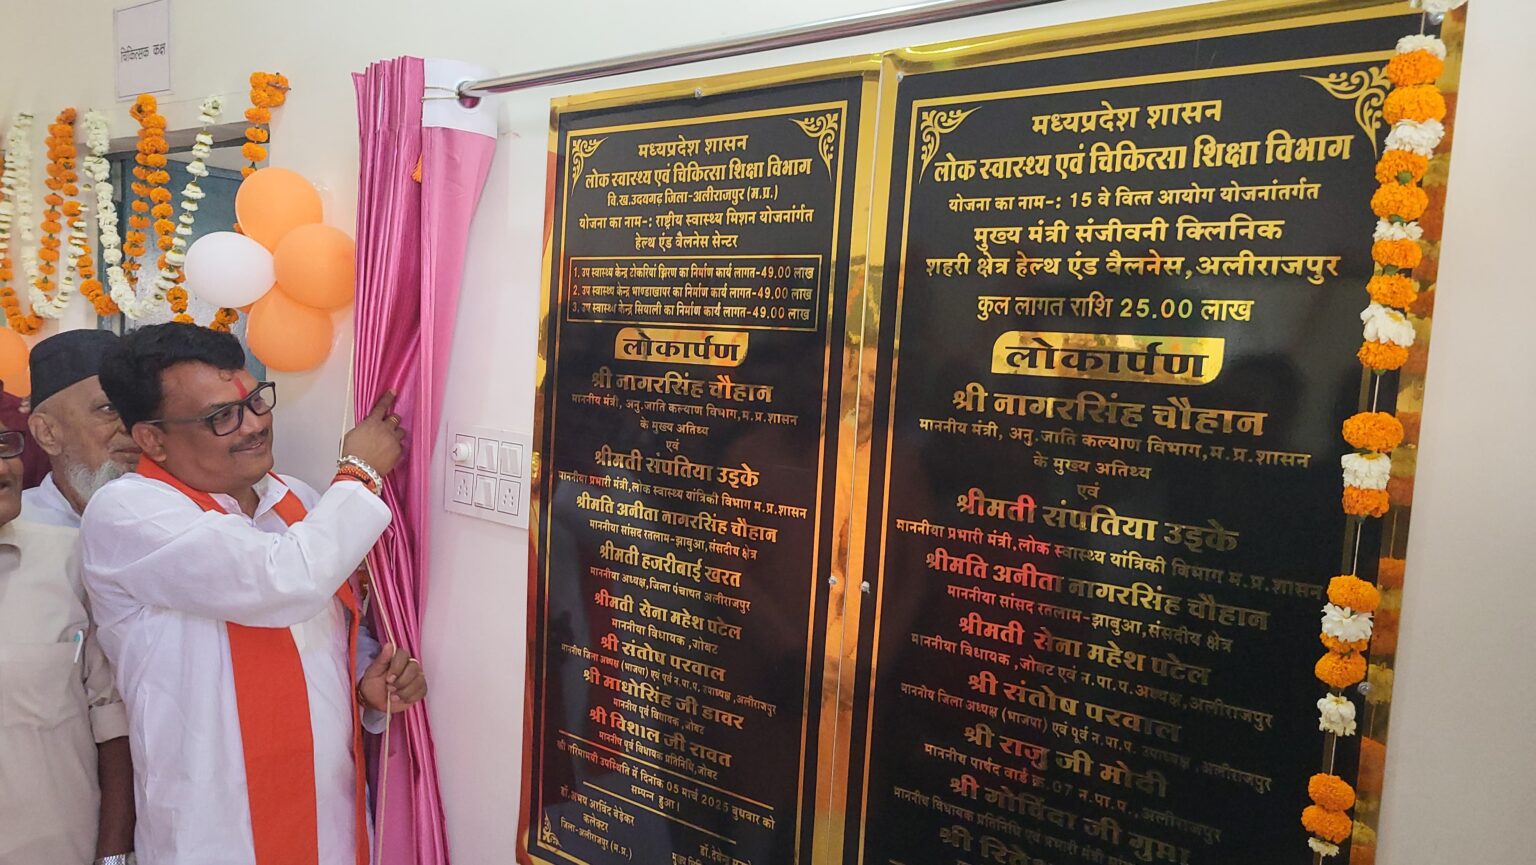 चिकित्सक कक्ष
मध्यप्रदेश शासन
लोक स्वास्थ्य एवं चिकित्सा शिक्षा विभाग
वि.ख.उदयगढ़ जिला-अलीराजपुर (म.प्र.)
योजना का नाम-: राष्ट्रीय स्वास्थ्य मिशन योजनांर्गत
हेल्थ एंड वैलनेस सेन्टर
1. उप स्वास्थ्य केन्द्र टोकरियां झिरण का निर्माण कार्य लागत-49.00 लाख
2. उप स्वास्थ्य केन्द्र भाण्डाखापर का निर्माण कार्य लागत-49.00 लाख
3. उप स्वास्थ्य केन्द्र सियाली का निर्माण कार्य लागत-49.00 लाख
लोकार्पण
श्री नागरसिंह चौहान
माननीय मंत्री, अनु.जाति कल्याण विभाग,म.प्र.शासन
के मुख्य अतिथ्य
एवं
श्रीमती संपतिया उइके
माननीया प्रभारी मंत्री,लोक स्वास्थ्य यांत्रिकी विभाग म.प्र.शासन
श्रीमति अनीता नागरसिंह चौहान
माननीया सांसद रतलाम-झाबुआ,संसदीय क्षेत्र
श्रीमती हजरीबाई खरत
माननीया अध्यक्ष,जिला पंचायत अलीराजपुर
श्रीमती सेना महेश पटेल
माननीया विधायक ,जोबट
श्री संतोष परवाल
माननीय जिला अध्यक्ष (भाजपा) एवं पूर्व न.पा.प. उपाध्यक्ष ,अलीराजपुर
श्री माधोसिंह जी डावर
माननीय पूर्व विधायक ,जोबट
श्री विशाल जी रावत
माननीय पूर्व विधायक प्रतिनिधि,जोबट
की गरिमामयी उपस्थिति में दिनांक 05 मार्च 2025 बुधवार को
सम्पन्न हुआ।
डॉ.अभय अरविंद बेड़ेकर
कलेक्टर
जिला-अलीराजपुर (म.प्र.)
मध्यप्रदेश शासन
लोक स्वास्थ्य एवं चिकित्सा शिक्षा विभाग
योजना का नाम-: 15 वे वित्त आयोग योजनांतर्गत
मुख्य मंत्री संजीवनी क्लिनिक
शहरी क्षेत्र हेल्थ एंड वैलनेस,अलीराजपुर
कुल लागत राशि 25.00 लाख
लोकार्पण
श्री नागरसिंह चौहान
माननीय मंत्री, अनु.जाति कल्याण विभाग,म.प्र.शासन
के मुख्य अतिथ्य
एवं
श्रीमती संपतिया उइके
माननीया प्रभारी मंत्री,लोक स्वास्थ्य यांत्रिकी विभाग म.प्र.शासन
श्रीमति अनीता नागरसिंह चौहान
माननीया सांसद रतलाम-झाबुआ,संसदीय क्षेत्र
श्रीमती सेना महेश पटेल
माननीया विधायक ,जोबट एवं न.पा.प.अध्यक्ष,अलीराजपुर
श्री संतोष परवाल
माननीय जिला अध्यक्ष (भाजपा) एवं पूर्व न.पा.प. उपाध्यक्ष ,अलीराजपुर
श्री राजु जी मोदी
माननीय पार्षद वार्ड क्र.07 न.पा.प.,अलीराजपुर
श्री गोविंदा जी गुप्ता
माननीय विधायक प्रतिनिधि एवं
श्री